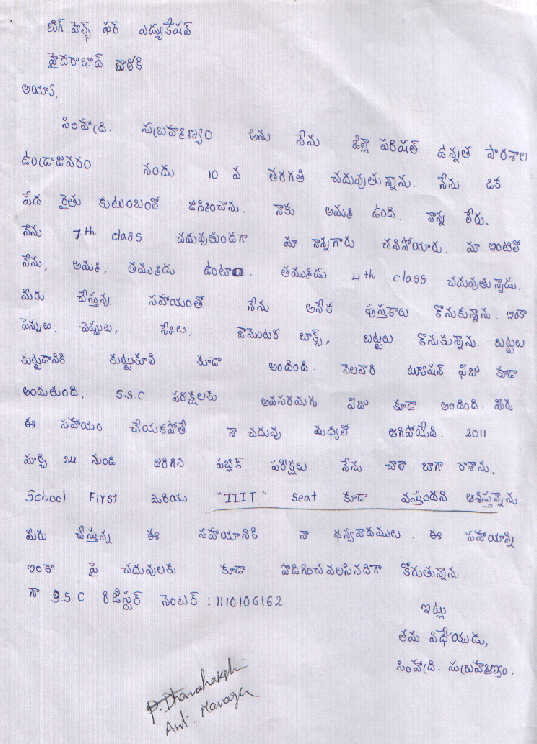 బిగ్ హెల్ప్ ఫర్ ఎడ్యుకేషన్
హైదరాబాద్ వారికి
అయ్యా,
సింహాద్రి. సుబ్రహ్మణ్యం అను నేను జిల్లా పరిషత్ ఉన్నత పాఠశాల
ఉండ్రాజవరం నందు 10 వ తరగతి చదువుతున్నాను. నేను ఒక
పేద రైతు కుటుంబంలో జన్మించాను. నాకు అమ్మ ఉంది నాన్న లేరు.
నేను 7th class చదువుతుండగా మా నాన్నగారు చనిపోయారు. మా ఇంటిలో
నేను, అమ్మ, తమ్ముడు ఉంటాం. తమ్ముడు 4th class చదువుతున్నాడు.
మీరు చేస్తున్న సహాయంతో నేను అనేక పుస్తకాలు కొనుకున్నాను. ఇంకా
పెన్నులు, చెప్పులు, జామెట్రి బాక్స్, బట్టలు కొనుకున్నాను బట్టలు
కుట్టడానికి కుట్టుకూలి కూడా అందింది. నెలవారి ట్యూషన్ ఫీజు కూడా
అందుతుంది. S.S.C పరీక్షలకు అవసరమగు ఫీజు కూడ అందింది. మీరు
ఈ సహాయం చేయకపోతే నా చదువు మధ్యలో ఆగిపోయేది. 2011
మార్చి 24 నుండి జరిగిన పబ్లిక్ పరీక్షలు నేను చాలా బాగా రాశాను.
School First మరియు "IIIT" seat కూడ వస్తుందని ఆశిస్తున్నాను
మీరు చేస్తున్న ఈ సహాయానికి నా ధన్యవాదములు. ఈ సహాయాన్ని
ఇంకా పై చదువులకు కూడా పొడిగించవలసినదిగా కోరుతున్నాను
నా S.S.C రిజిస్టర్ నెంబర్ : 1110106162
ఇట్లు
తమ విధేయుడు,
సింహాద్రి. సుబ్రహ్మణ్యం.